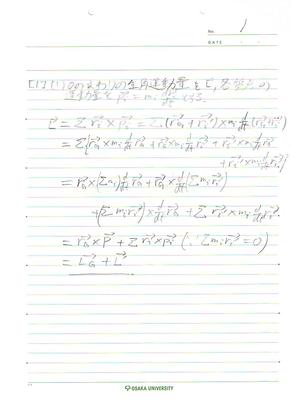 No. 1
DATE
[1](1) Oのまわりの全角運動量をL⃗, 各質点の
運動量を p⃗ᵢ = mᵢ dr⃗ᵢ/dt とする.
L⃗ = Σ r⃗ᵢ × p⃗ᵢ = Σ (r⃗G + r⃗ᵢ') × mᵢ d/dt (r⃗G + r⃗ᵢ')
= Σ{r⃗G × mᵢ d/dt r⃗G + r⃗G × mᵢ d/dt r⃗ᵢ' + r⃗ᵢ' × mᵢ d/dt r⃗G
+ r⃗ᵢ' × mᵢ d/dt r⃗ᵢ'}
= r⃗G × (Σmᵢ) d/dt r⃗G + r⃗G × d/dt (Σ mᵢ r⃗ᵢ')
+ (Σ mᵢ r⃗ᵢ') × d/dt r⃗G + Σ r⃗ᵢ' × mᵢ d/dt r⃗ᵢ'
= r⃗G × P⃗ + Σ r⃗ᵢ' × p⃗ᵢ' (∵ Σ mᵢ r⃗ᵢ' = 0)
= L⃗G + L⃗'
OSAKA UNIVERSITY